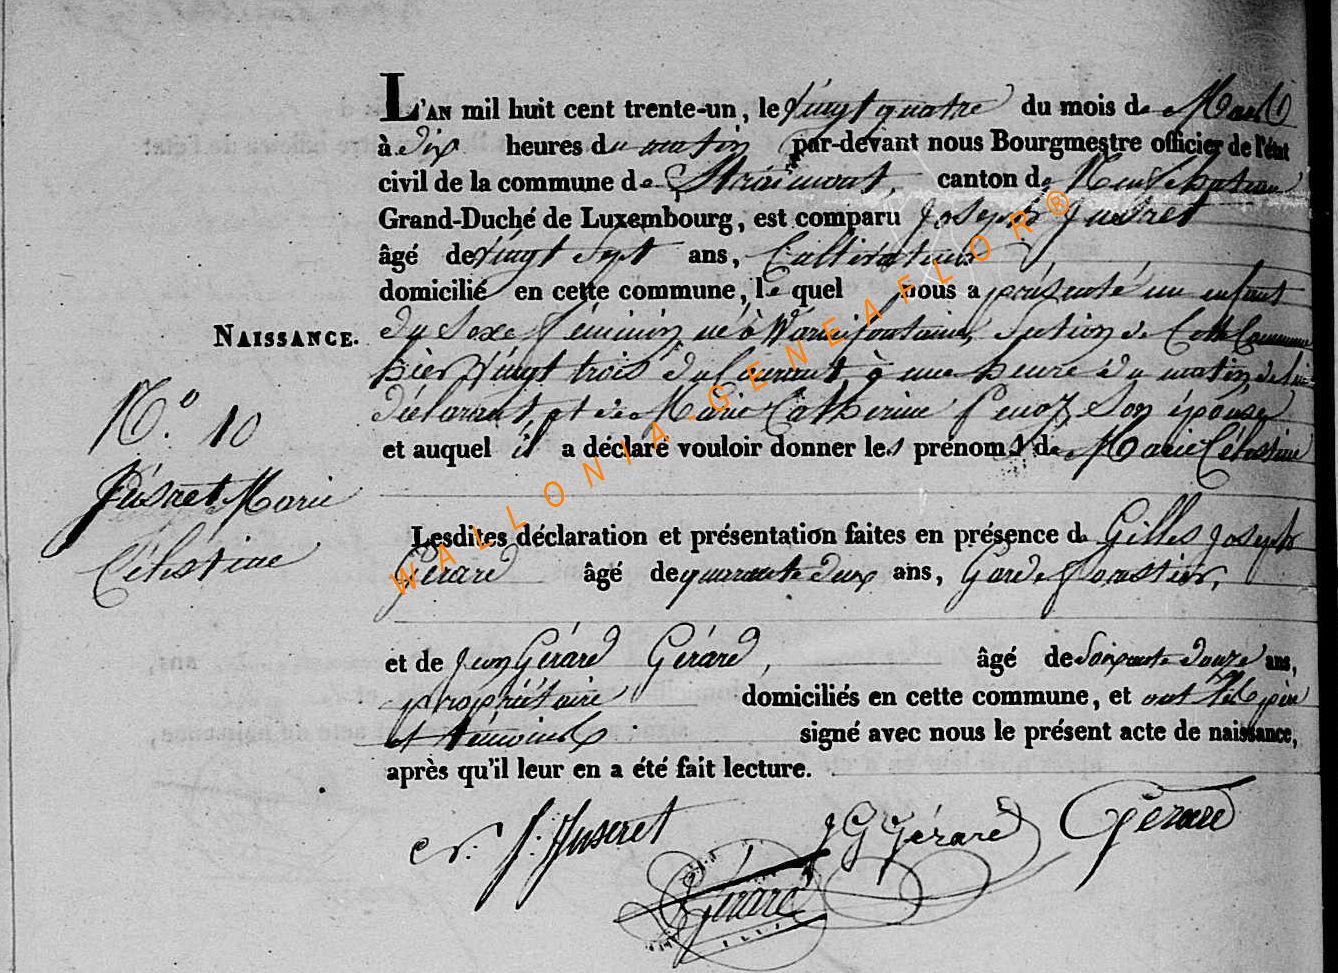 L'AN mil huit cent trente-un, le vingt quatre du mois de Mars
à dix heures du matin par-devant nous Bourgmestre officier de l'état
civil de la commune de Straimont, canton de Neufchateau
Grand-Duché de Luxembourg, est comparu Joseph Jusseret
âgé de vingt Sept ans, Cultivateur
domicilié en cette commune, le quel nous a présenté un enfant
NAISSANCE.
du Sexe féminin né à Warmifontaine, Section de Cette Commune
hier vingt trois du Courant à une heure du matin, de lui
déclarant et de Marie Catherine son épouse
et auquel il a déclaré vouloir donner les prénoms de Marie Célestine
N.º 10
Marie
Célestine
Lesdites déclaration et présentation faites en présence de Gilles Joseph
Gérard âgé de quarante deux ans, Garde forestier,
et de Jean Gérard Gérard, âgé de Soixante douze ans,
propriétaire domiciliés en cette commune, et ont les père
et témoins signé avec nous le présent acte de naissance,
après qu'il leur en a été fait lecture.
J. Jusseret
J G Gérard
Gérard
Gérard
WALLONIA-GENEAFLOR®